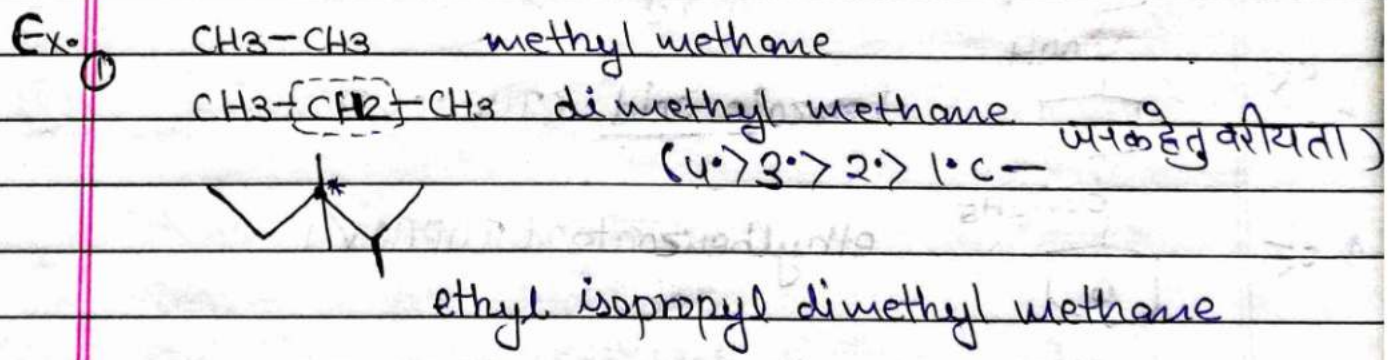 Ex. CH3-CH3 methyl methane
①
CH3-CH2-CH3 dimethyl methane
(4°>3°>2°>1°C - जनक हेतु वरीयता)
*
ethyl isopropyl dimethyl methane